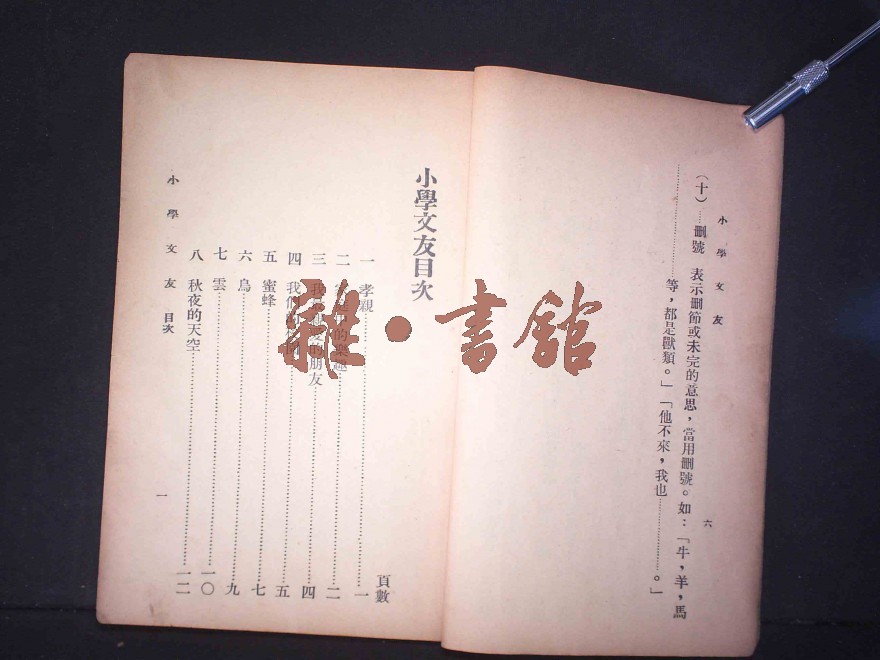 小學文友 六
（十）……刪號 表示刪節或未完的意思，當用刪號。如：「牛，羊，馬
……………等，都是獸類。」「他不來，我也…………。」
小學文友目次
頁數
一 孝親……………一
二 的樂趣……………二
三 我 的朋友……………四
四 我們 ……………五
五 蜜蜂……………七
六 鳥……………九
七 雲……………一〇
八 秋夜的天空……………一二
小學文友 目次 一
雜·書館